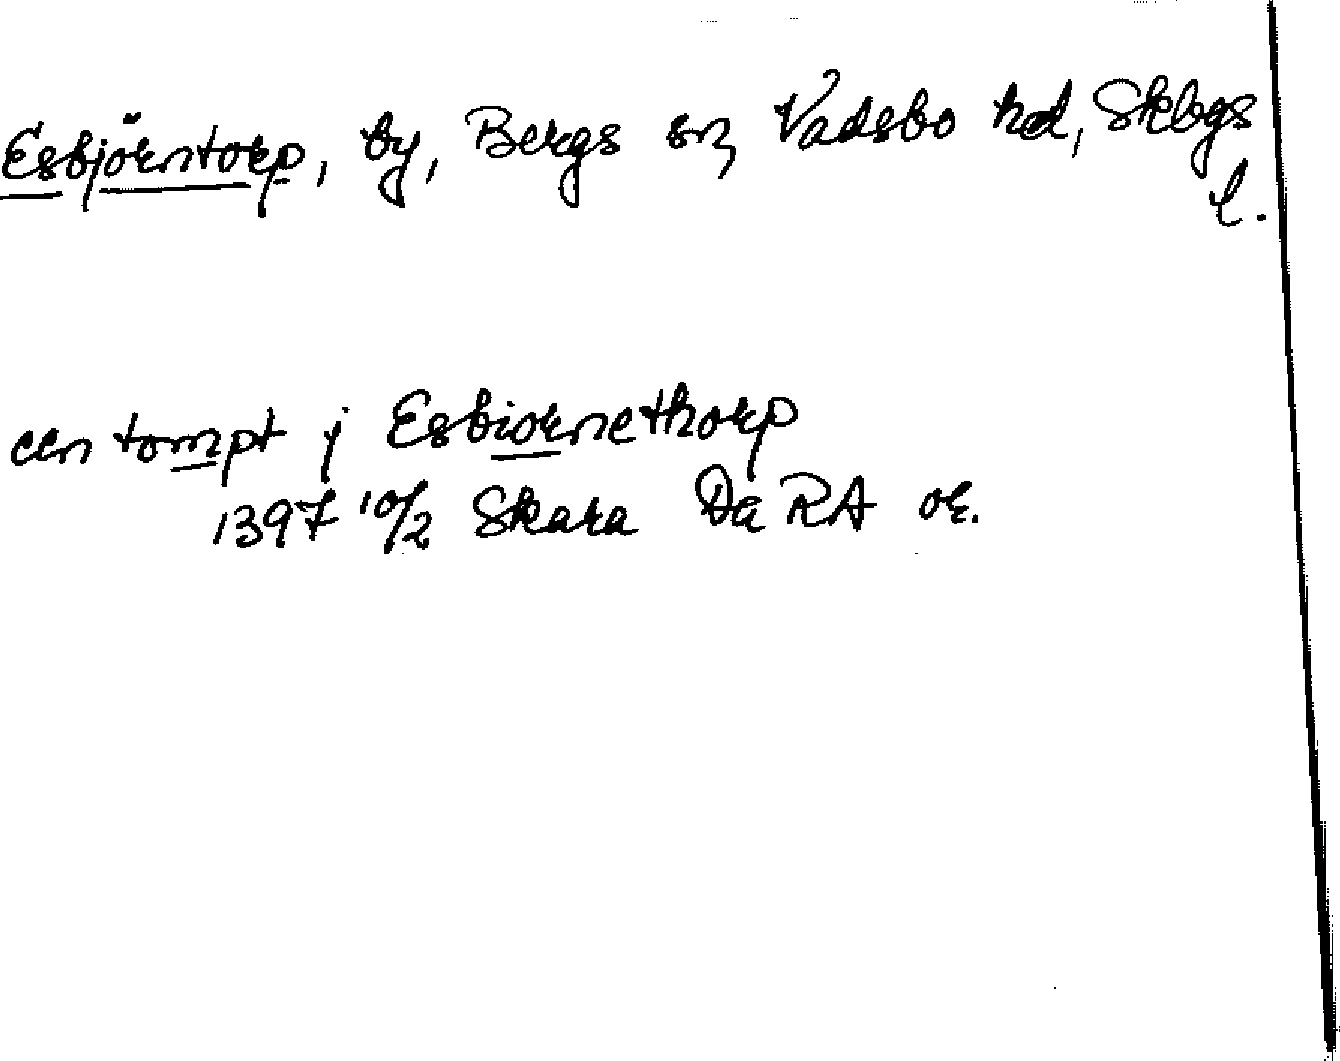 Esbjörntorp, by, Bergs sn, Vadsbo hd, Skbgs
l.
een tompt j Esbiornethorp
1397 10/2 Skara Da RA or.